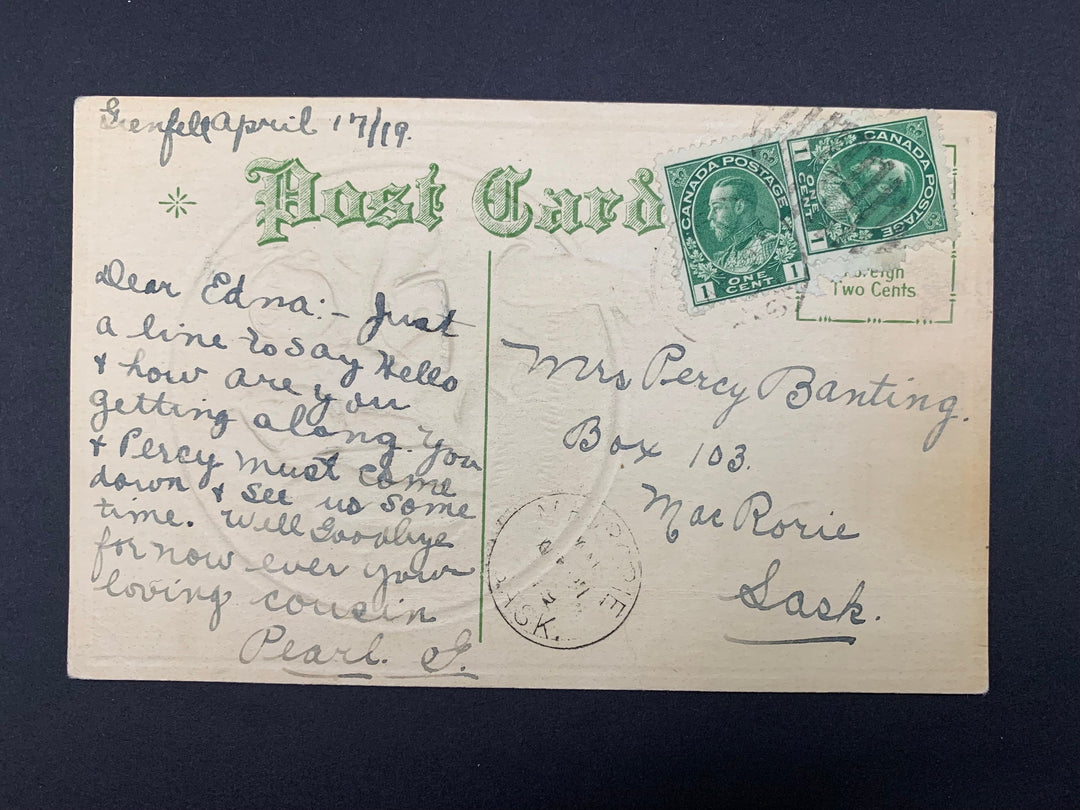 Grenfell April 17/19.
Post Card
CANADA POSTAGE
1 ONE CENT 1
CANADA POSTAGE
1 ONE CENT 1
Foreign
Two Cents
Dear Edna:- Just
a line to say Hello
& how are you
getting along. You
& Percy must come
down & see us some
time. Well Goodbye
for now ever your
loving cousin
Pearl. G.
Mrs Percy Banting.
Box 103.
Mac Rorie
Sask.
SASK.